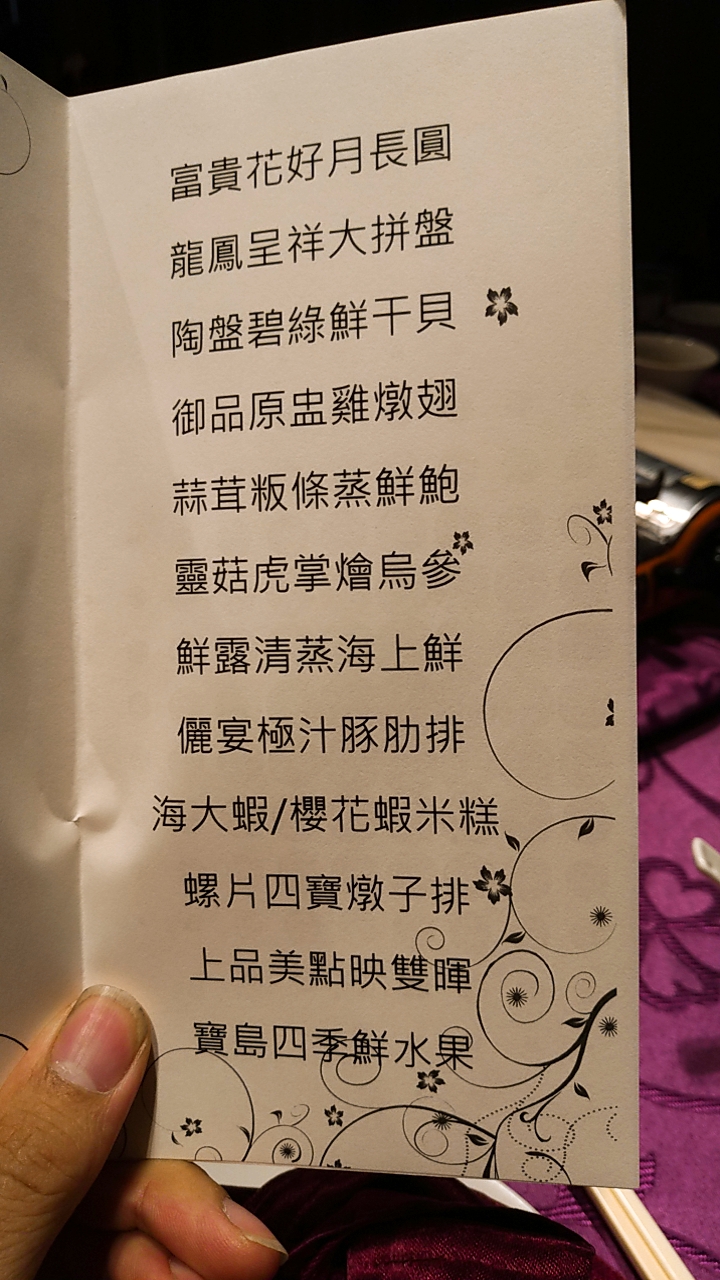 富貴花好月長圓
龍鳳呈祥大拼盤
陶盤碧綠鮮干貝
御品原盅雞燉翅
蒜茸粄條蒸鮮鮑
靈菇虎掌燴烏參
鮮露清蒸海上鮮
儷宴極汁豚肋排
海大蝦/櫻花蝦米糕
螺片四寶燉子排
上品美點映雙暉
寶島四季鮮水果